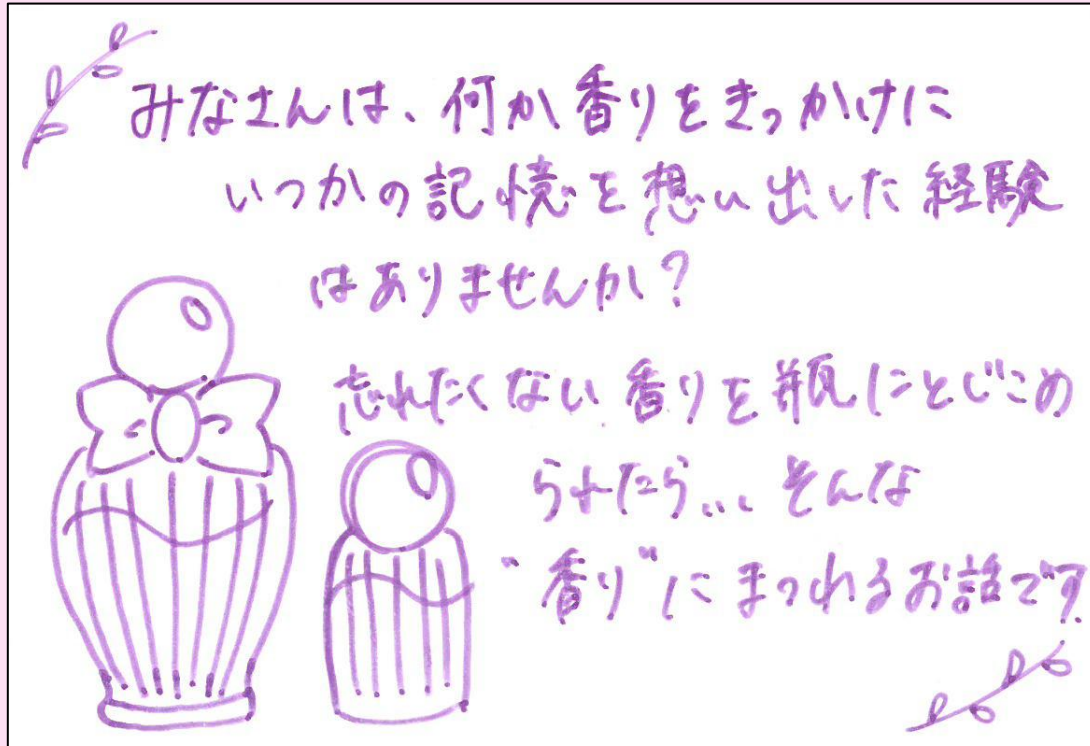 みなさんは、何か香りをきっかけに
いつかの記憶を想い出した経験
はありませんか?
忘れたくない香りを瓶にとじこめ
られたら... そんな
"香り"にまつわるお話です